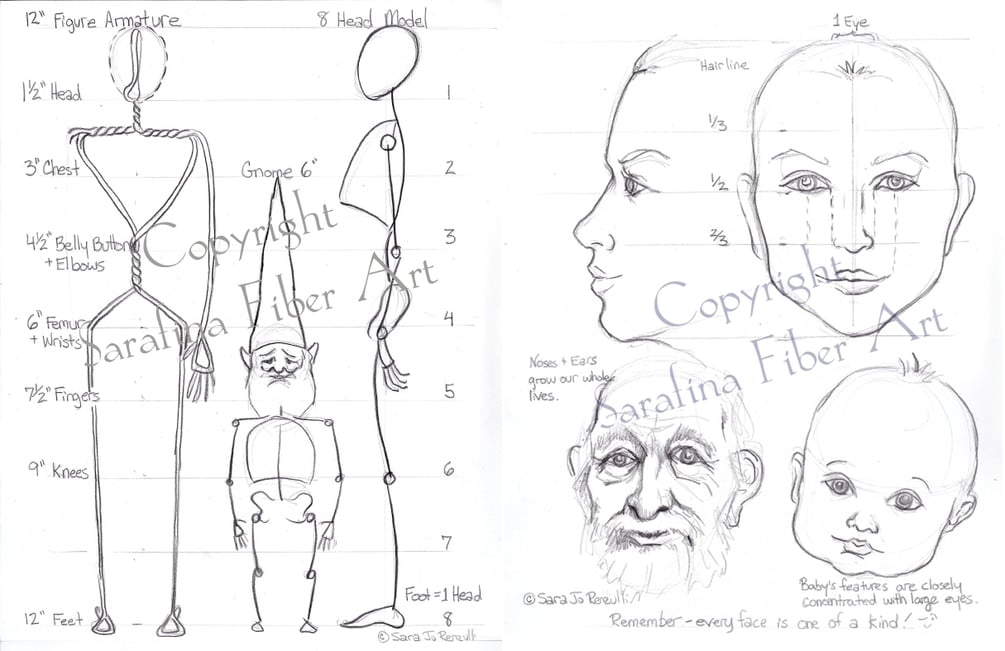 12" Figure Armature
8 Head Model
1½" Head
1
3" Chest
Gnome 6"
2
4½" Belly Button
+ Elbows
3
6" Femur
+ Wrists
4
7½" Fingers
5
9" Knees
6
7
Foot = 1 Head
12" Feet
8
© Sara Jo Renault
Copyright
Sarafina Fiber Art
1 Eye
Hairline
1/3
1/2
2/3
Copyright
Sarafina Fiber Art
Noses + Ears
grow our whole
lives.
© Sara Jo Renault
Baby's features are closely
concentrated with large eyes.
Remember - every face is one of a kind!